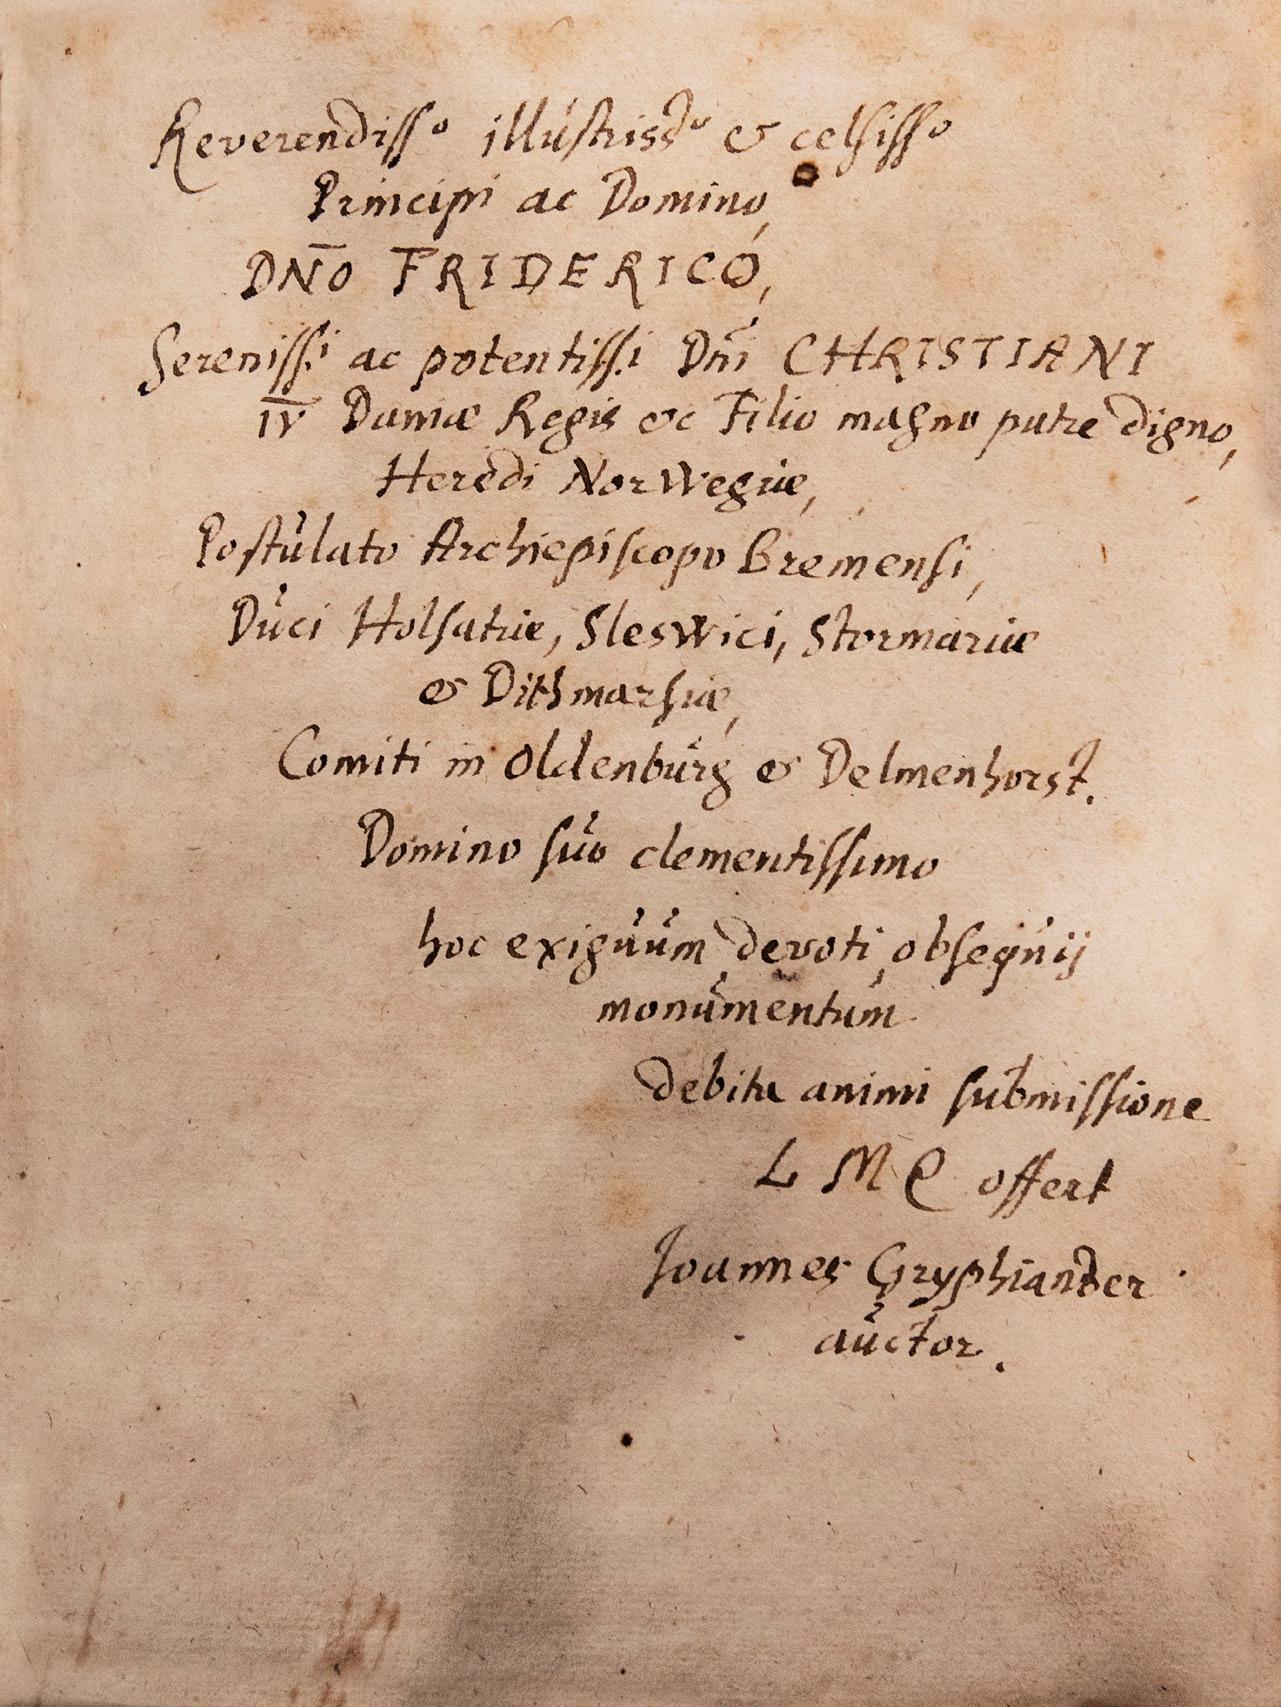 Reverendisso illustrissto & celsisso
Principi ac Domino,
DN̄O FRIDERICO,
Serenissi ac potentissi Dn̄i CHRISTIANI
IV Daniæ Regis &c Filio magno patre digno,
Heredi Norwegiæ,
Postulato Archiepiscopo Bremensi,
Duci Holsatiæ, Sleswici, Stormariæ
& Dithmarsiæ,
Comiti in Oldenburg & Delmenhorst.
Domino suo clementissimo
hoc exiguum, devoti, obsequij
monumentum
debita animi submissione
L M Q offert
Joannes Gryphiander
auctor.